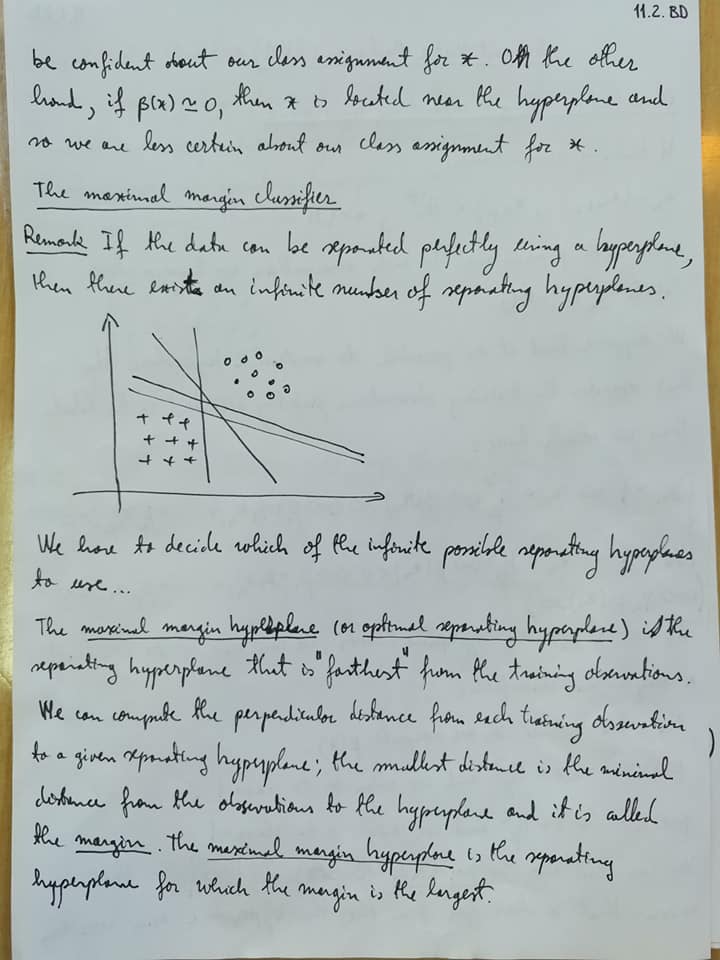 11.2. BD
be confident about our class assignment for x. On the other
hand, if β(x) ≃ 0, then x is located near the hyperplane and
so we are less certain about our class assignment for x.
The maximal margin classifier
Remark If the data can be separated perfectly using a hyperplane,
then there exist an infinite number of separating hyperplanes.
We have to decide which of the infinite possible separating hyperplanes
to use...
The maximal margin hyperplane (or optimal separating hyperplane) is the
separating hyperplane that is "farthest" from the training observations.
We can compute the perpendicular distance from each training observation
to a given separating hyperplane; the smallest distance is the minimal
distance from the observations to the hyperplane and it is called
the margin. The maximal margin hyperplane is the separating
hyperplane for which the margin is the largest.